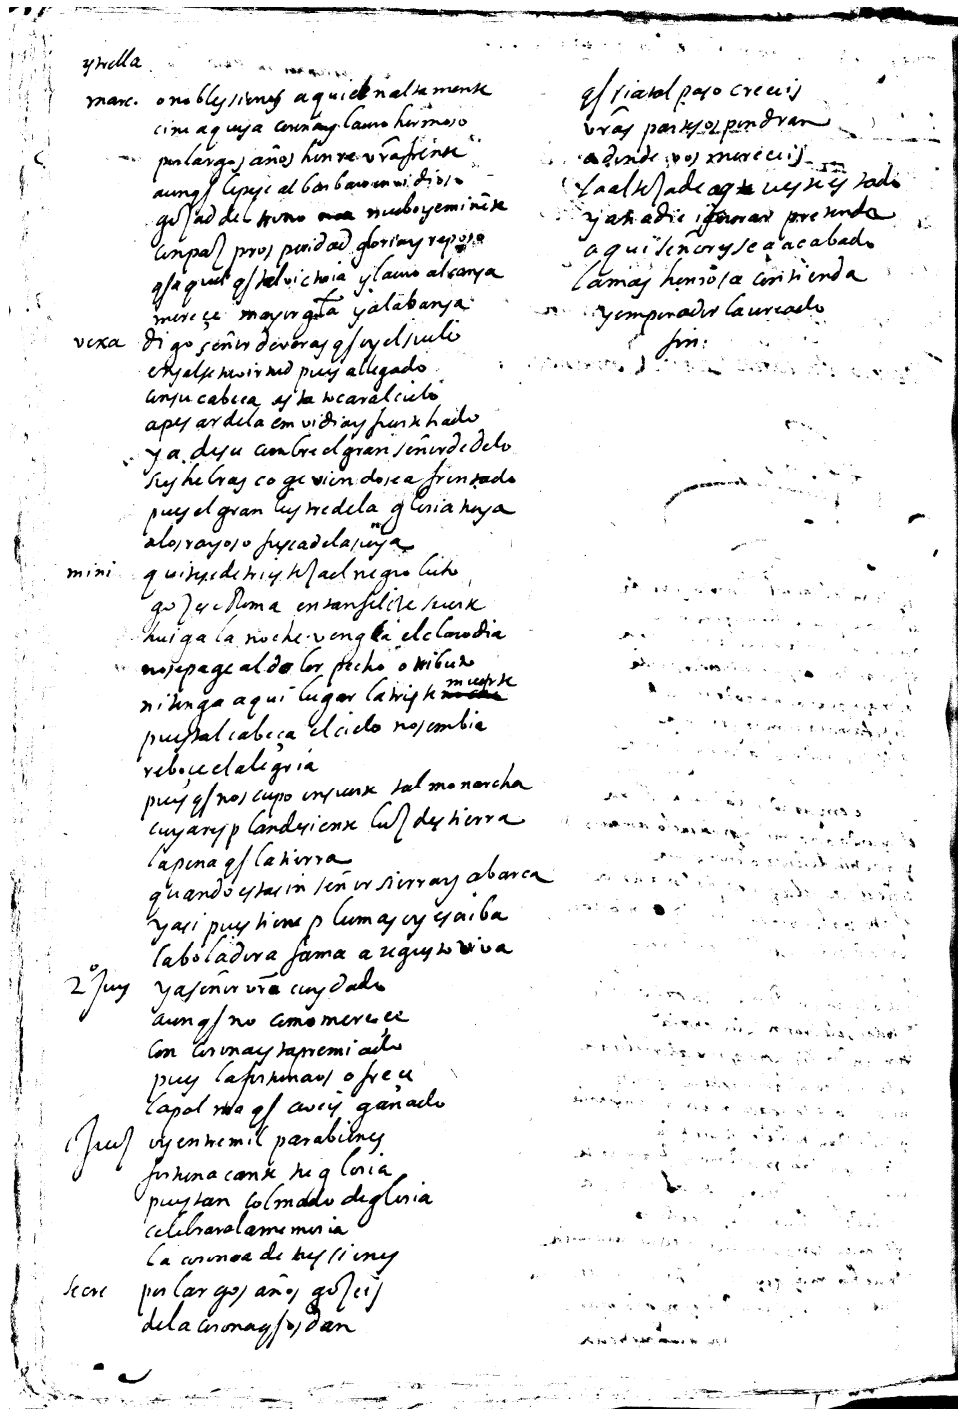 ystrella
marc. o nobles sienes a quien altamente
cine aquesa corona y lauro hermoso
por largos años honre vrã frente
aunq̃ le pese al barbaro envidioso
gozad del trono nuebo yeminẽte
con paz prosperidad gloria y reposo
q̃ a quien q̃ tal victoria y lauro alcança
mereçe mayor gľa y alabança
vera digo señor de veras q̃ oy el suelo
ensalse tu virtud pues a llegado
con su cabeça asta tocar al cielo
a pesar de la envidia y fuerte hado
ya de su cumbre el gran señor de delo
sus hebras coge viendose afrentado
pues el gran lustre de la gloria tuya
a los rayos ofusca de la suya
mini quitese de tristeza el negro luto
gozese Roma en tan felice suerte
huiga la noche venga el claro dia
no se page al dolor pecho o tributo
ni tenga aqui lugar la triste muerte
pues tal cabeça el cielo nos embia
reboçe el alegria
pues q̃ nos cupo en suerte tal monarcha
cuya resplandesiente luz destierra
la pena q̃ la tierra
quando esta sin señor sierra y abarca
y asi pues tiene plumas oy esciba
la boladora fama augusto viva
2º Juez ya señor vrõ cuydado
aunq̃ no como mereçe
con corona esta premiado
pues la fortuna os ofreçe
la palma q̃ aveis ganado
Juez oy entre mil parabienes
fortuna cante tu gloria
pues tan colmado de gloria
celebrara la memoria
la corona de tus sienes
secre por largos años gozeis
de la corona q̃ os dan
q̃ si a tal paso creceis
vrãs partes os pondran
adonde vos mereceis
la alteza de aqueste estado
y a nadie ignorar pretenda
aqui señor se a acabado
la mas honrosa contienda
y emperador laureado
fin.